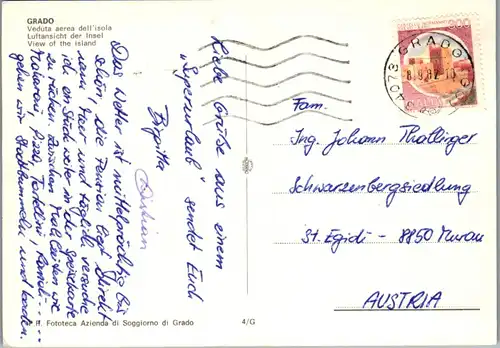 GRADO
Veduta aerea dell'isola
Luftansicht der Insel
View of the Island
34073 GRADO
8.9.82 10
Liebe Grüße aus einem
„Superurlaub" sendet Euch
Birgitta
Das Wetter ist mittelprächtig bis
schön, die Pension liegt direkt
am Meer und täglich versuche
ich ein Stück weiter in der Speisekarte
zu rücken. Zwischen Mahlzeiten wie
Makkaroni, Pizza, Tortellini, Ravioli.....
gehen wir Stadtbummeln und baden.
Fam.
Ing. Johann Thallinger
Schwarzenbergsiedlung
St. Egidi - 8850 Murau
AUSTRIA
R. Fototeca Azienda di Soggiorno di Grado
4/G